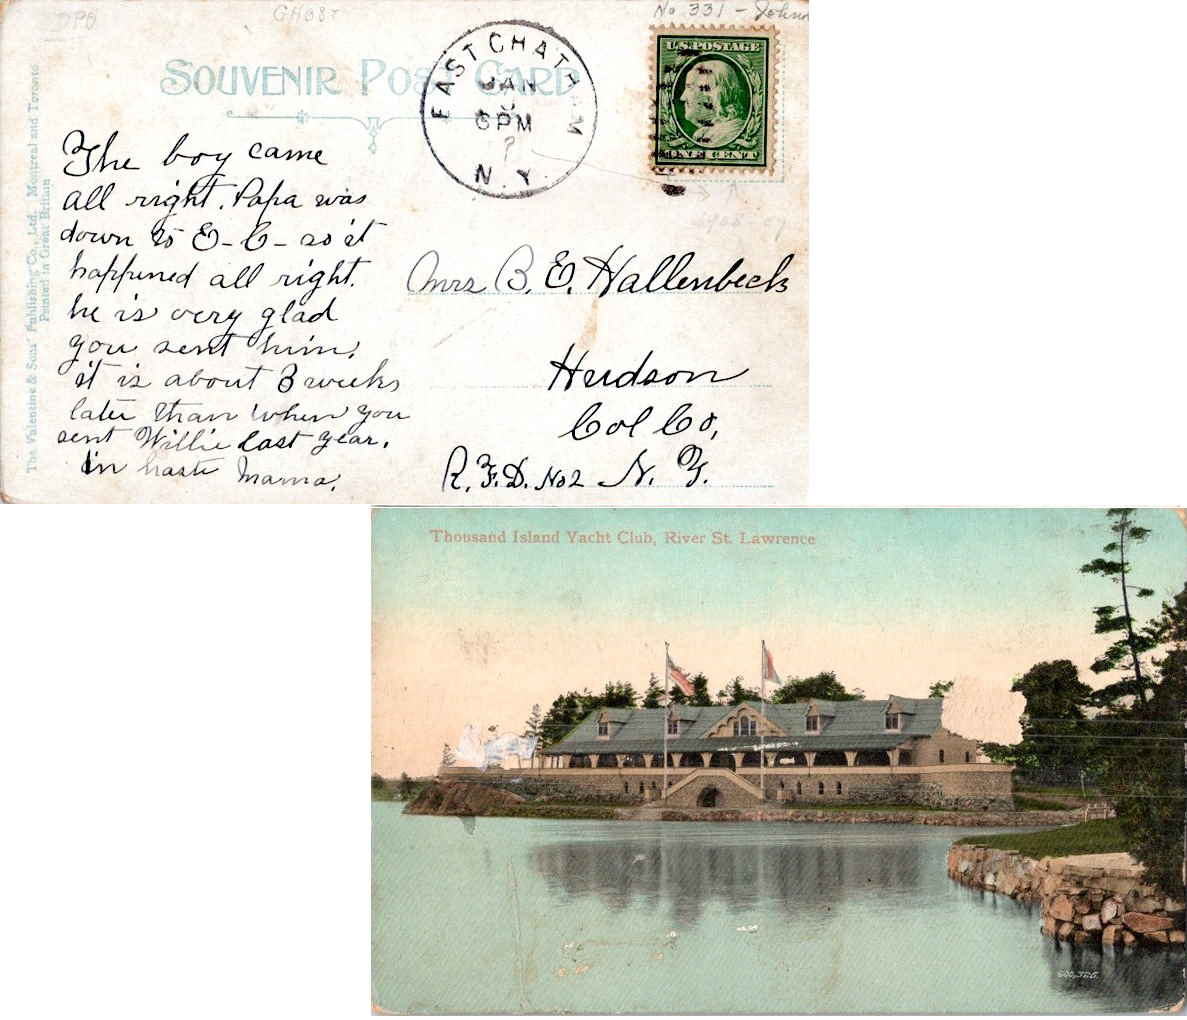 DPO
GHOST
No 331 -
SOUVENIR POST CARD
EAST CHATHAM
JAN
6 PM
N.Y.
U.S. POSTAGE
ONE CENT
The Valentine & Sons' Publishing Co., Ltd. Montreal and Toronto
Printed in Great Britain
The boy came
all right. Papa was
down to E-C- so it
happened all right.
he is very glad
you sent him.
it is about 3 weeks
later than when you
sent Willie last year.
in haste Mama.
Mrs B. E. Hallenbeck
Hudson
Col Co,
R.F.D. No 2 N. Y.
Thousand Island Yacht Club, River St. Lawrence